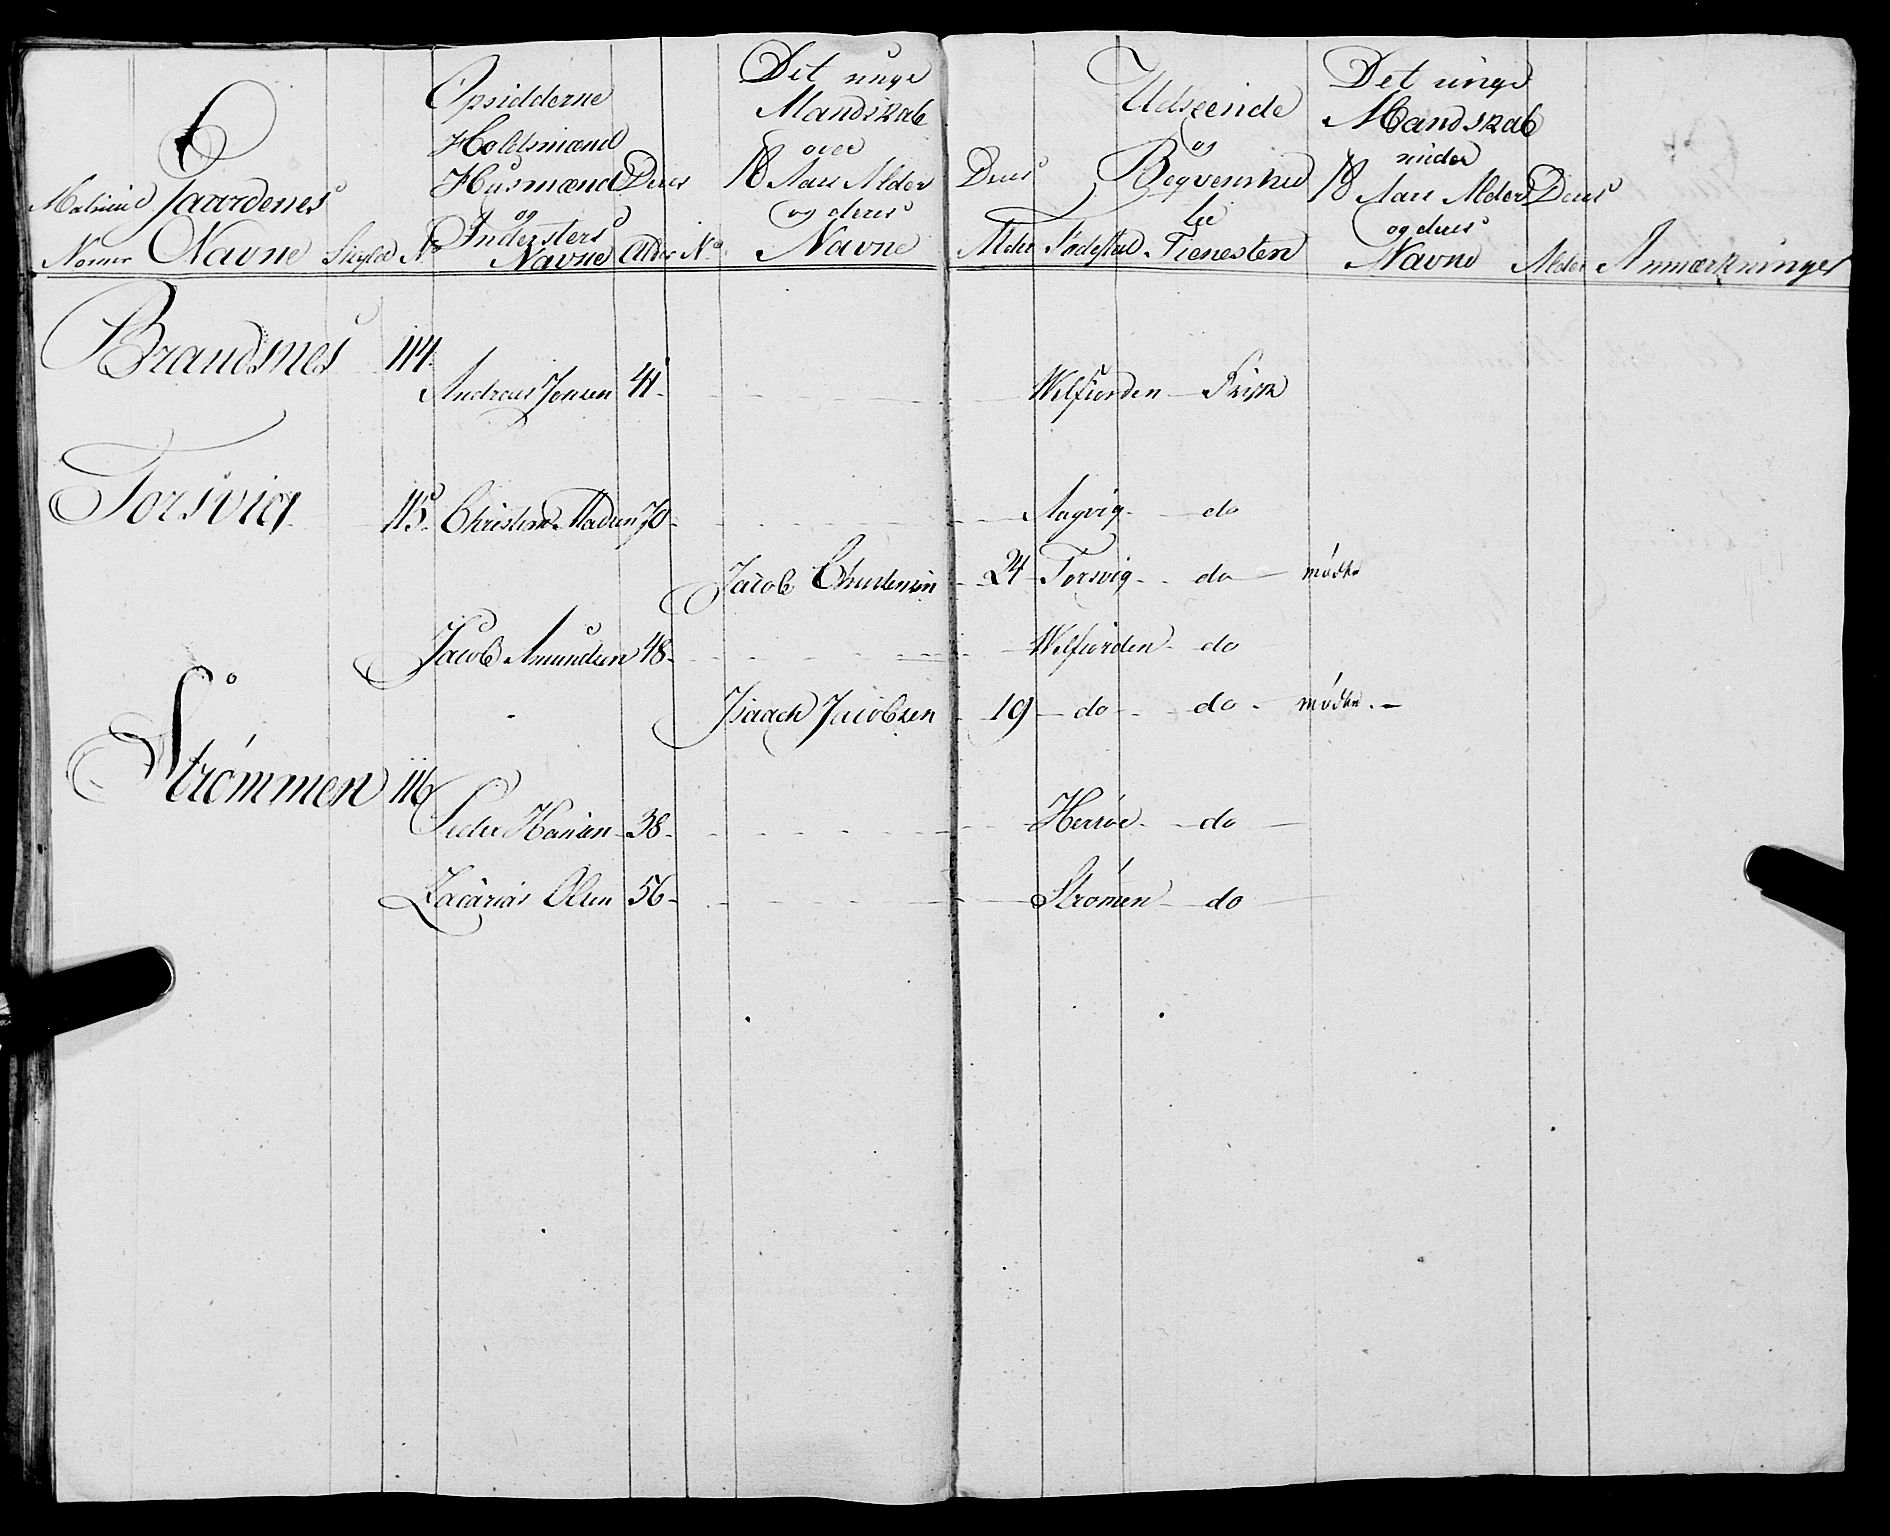 Matricul Nomer
Gaardenes Navne
Skyld
No
Opsidderne Holdsmænd Husmænd og Indersters Navne
Deres Alder
No
Det unge Mandskab over 18 Aars Alder og deres Navne
Deres Alder
Fødested
Udseende og Beqvemhed til Tienesten
Det unge Mandskab under 18 Aars Alder og deres Navne
Deres Alder
Anmærkninger
Brandsnes 114.
Andreas Jonsen 41 - Welfiorden - Frisk
Torsvig 115. Christen Madsen 70 - Aagvig - do
Jacob Christensen - 24 - Torsvig - do - mødte
Jacob Amundsen 48 - Welfiorden - do
Isaach Jacobsen - 19 - do - do - mødte. -
Strømmen 116
Peder Hansen - 38 - Herøe - do -
Zacarias Olsen 56 - Strømen - do